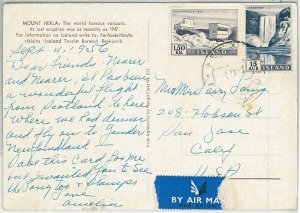 MOUNT HEKLA. The world famous volcano.
Its last eruption was as recently as 1947.
For information on Iceland write to: Ferðaskrifstofa
ríkisins (Iceland Tourist Bureau) Reykjavík.
Sept 11. 1956
Dear Friends Nearer
and Nearer, it has been
a wonderful flight
from Scotland to here
Where we had dinner
and fly on to Gander
Newfoundland –
Take this Card for me
but wanted you to See
the Songs + Stamps
Love
Amelia
1.50 KR ISLAND
15 AUR ISLAND
Mr + Mrs Perry Long
248 - Hobson St
San Jose
Calif
U.S.A.
BY AIR MAIL